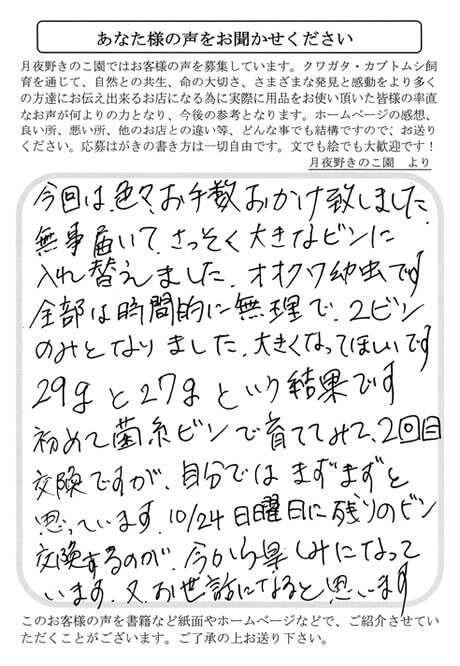 あなた様の声をお聞かせください
月夜野きのこ園ではお客様の声を募集しています。クワガタ・カブトムシ飼
育を通じて、自然との共生、命の大切さ、さまざまな発見と感動をより多く
の方達にお伝え出来るお店になる為に実際に用品をお使い頂いた皆様の率直
なお声が何よりの力となり、今後の参考となります。ホームページの感想、
良い所、悪い所、他のお店との違い等、どんな事でも結構ですので、お送り
ください。応募はがきの書き方は一切自由です。文でも絵でも大歓迎です！
月夜野きのこ園　より
今回は、色々、お手数おかけ致しました
無事届いて、さっそく大きなビンに
入れ替えました。オオクワ幼虫です
全部は時間的に無理で、2ビン
のみとなりました。大きくなってほしいです
29gと27gという結果です
初めて菌糸ビンで育ててみて、2回目
交換ですが、自分ではまずまずと
思っています。10/24日曜日に残りのビン
交換するのが、今から楽しみになって
います。又、お世話になると思います
このお客様の声を書籍など紙面やホームページなどで、ご紹介させてい
ただくことがございます。ご了承の上お送り下さい。